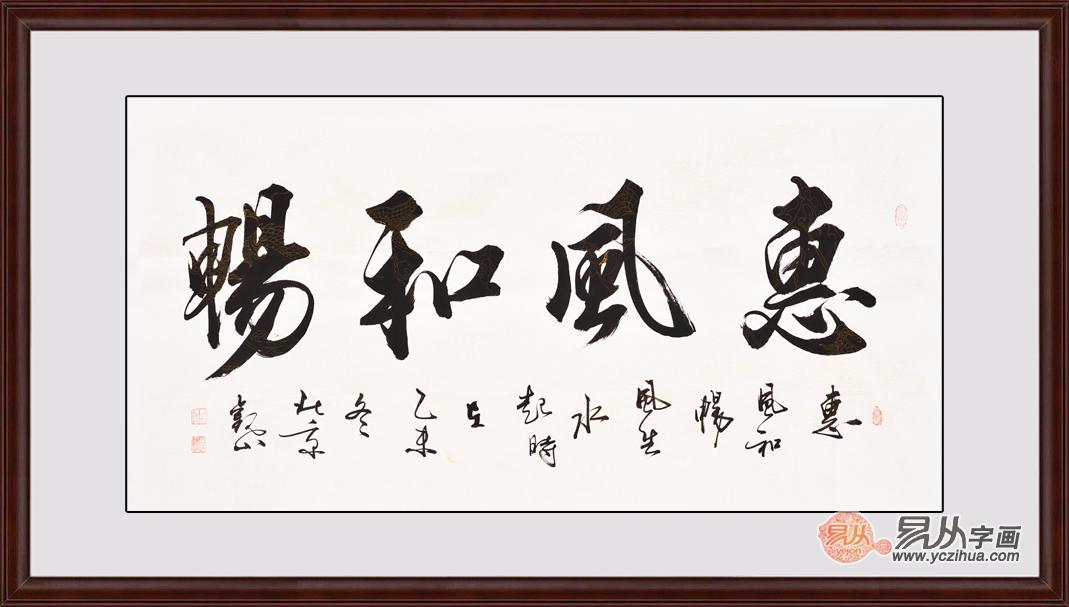 惠風和暢
惠
風和
暢
風生
水
起時
在
乙未
冬
北京
易从
yojon
易从字画
www.yczihua.com